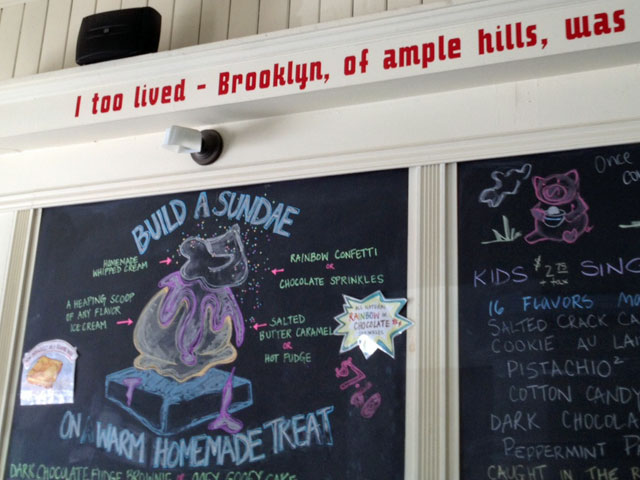 I too lived - Brooklyn, of ample hills, was
BUILD A SUNDAE
HOMEMADE
WHIPPED CREAM
RAINBOW CONFETTI
OR
CHOCOLATE SPRINKLES
A HEAPING SCOOP
OF ANY FLAVOR
ICE CREAM
SALTED
BUTTER CARAMEL
OR
HOT FUDGE
ALL NATURAL
RAINBOW OR
CHOCOLATE
SPRINKLES
7.60
ON A WARM HOMEMADE TREAT
DARK CHOCOLATE FUDGE BROWNIE
OOEY GOOEY CAKE
Once
KIDS $2.75 SING
+ TAX
16 FLAVORS
SALTED CRACK CA
COOKIE AU LAI
PISTACHIO²
COTTON CANDY
DARK CHOCOLA
PEPPERMINT PA
CAUGHT IN THE R